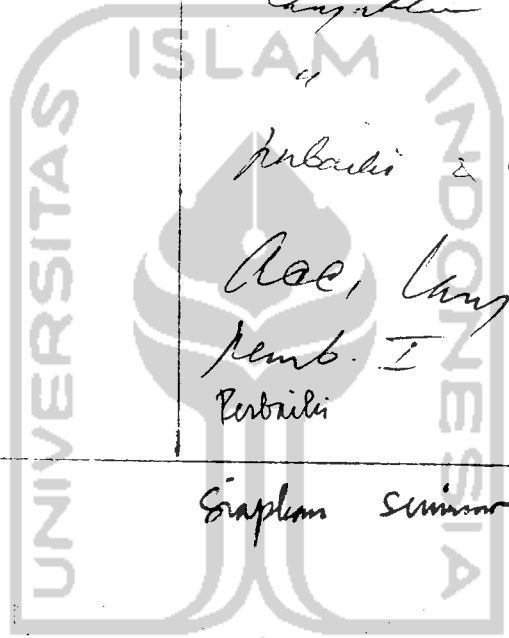 ISLAM
UNIVERSITAS
INDONESIA
"
perbaiki
Acc,
pemb. I
Perbaiki
Siapkan seminar